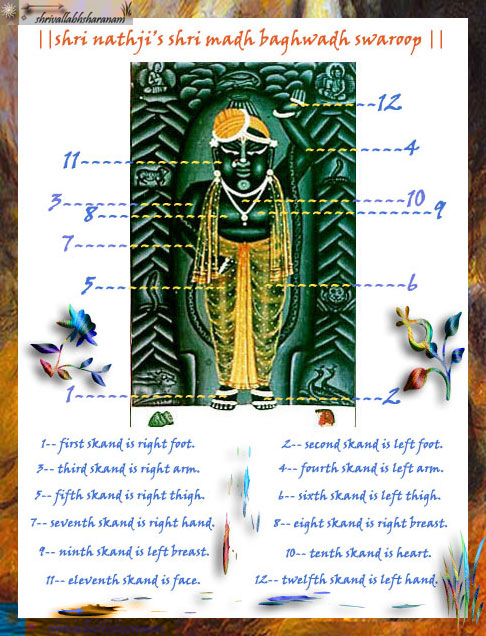 shrivallabhsharanam
||shri nathji's shri madh baghwadh swaroop ||
12
4
11
3
10
8
9
7
5
6
1
2
1-- first skand is right foot.
2-- second skand is left foot.
3-- third skand is right arm.
4-- fourth skand is left arm.
5-- fifth skand is right thigh.
6-- sixth skand is left thigh.
7-- seventh skand is right hand.
8-- eight skand is right breast.
9-- ninth skand is left breast.
10-- tenth skand is heart.
11-- eleventh skand is face.
12-- twelfth skand is left hand.
shrivallabhsharanam